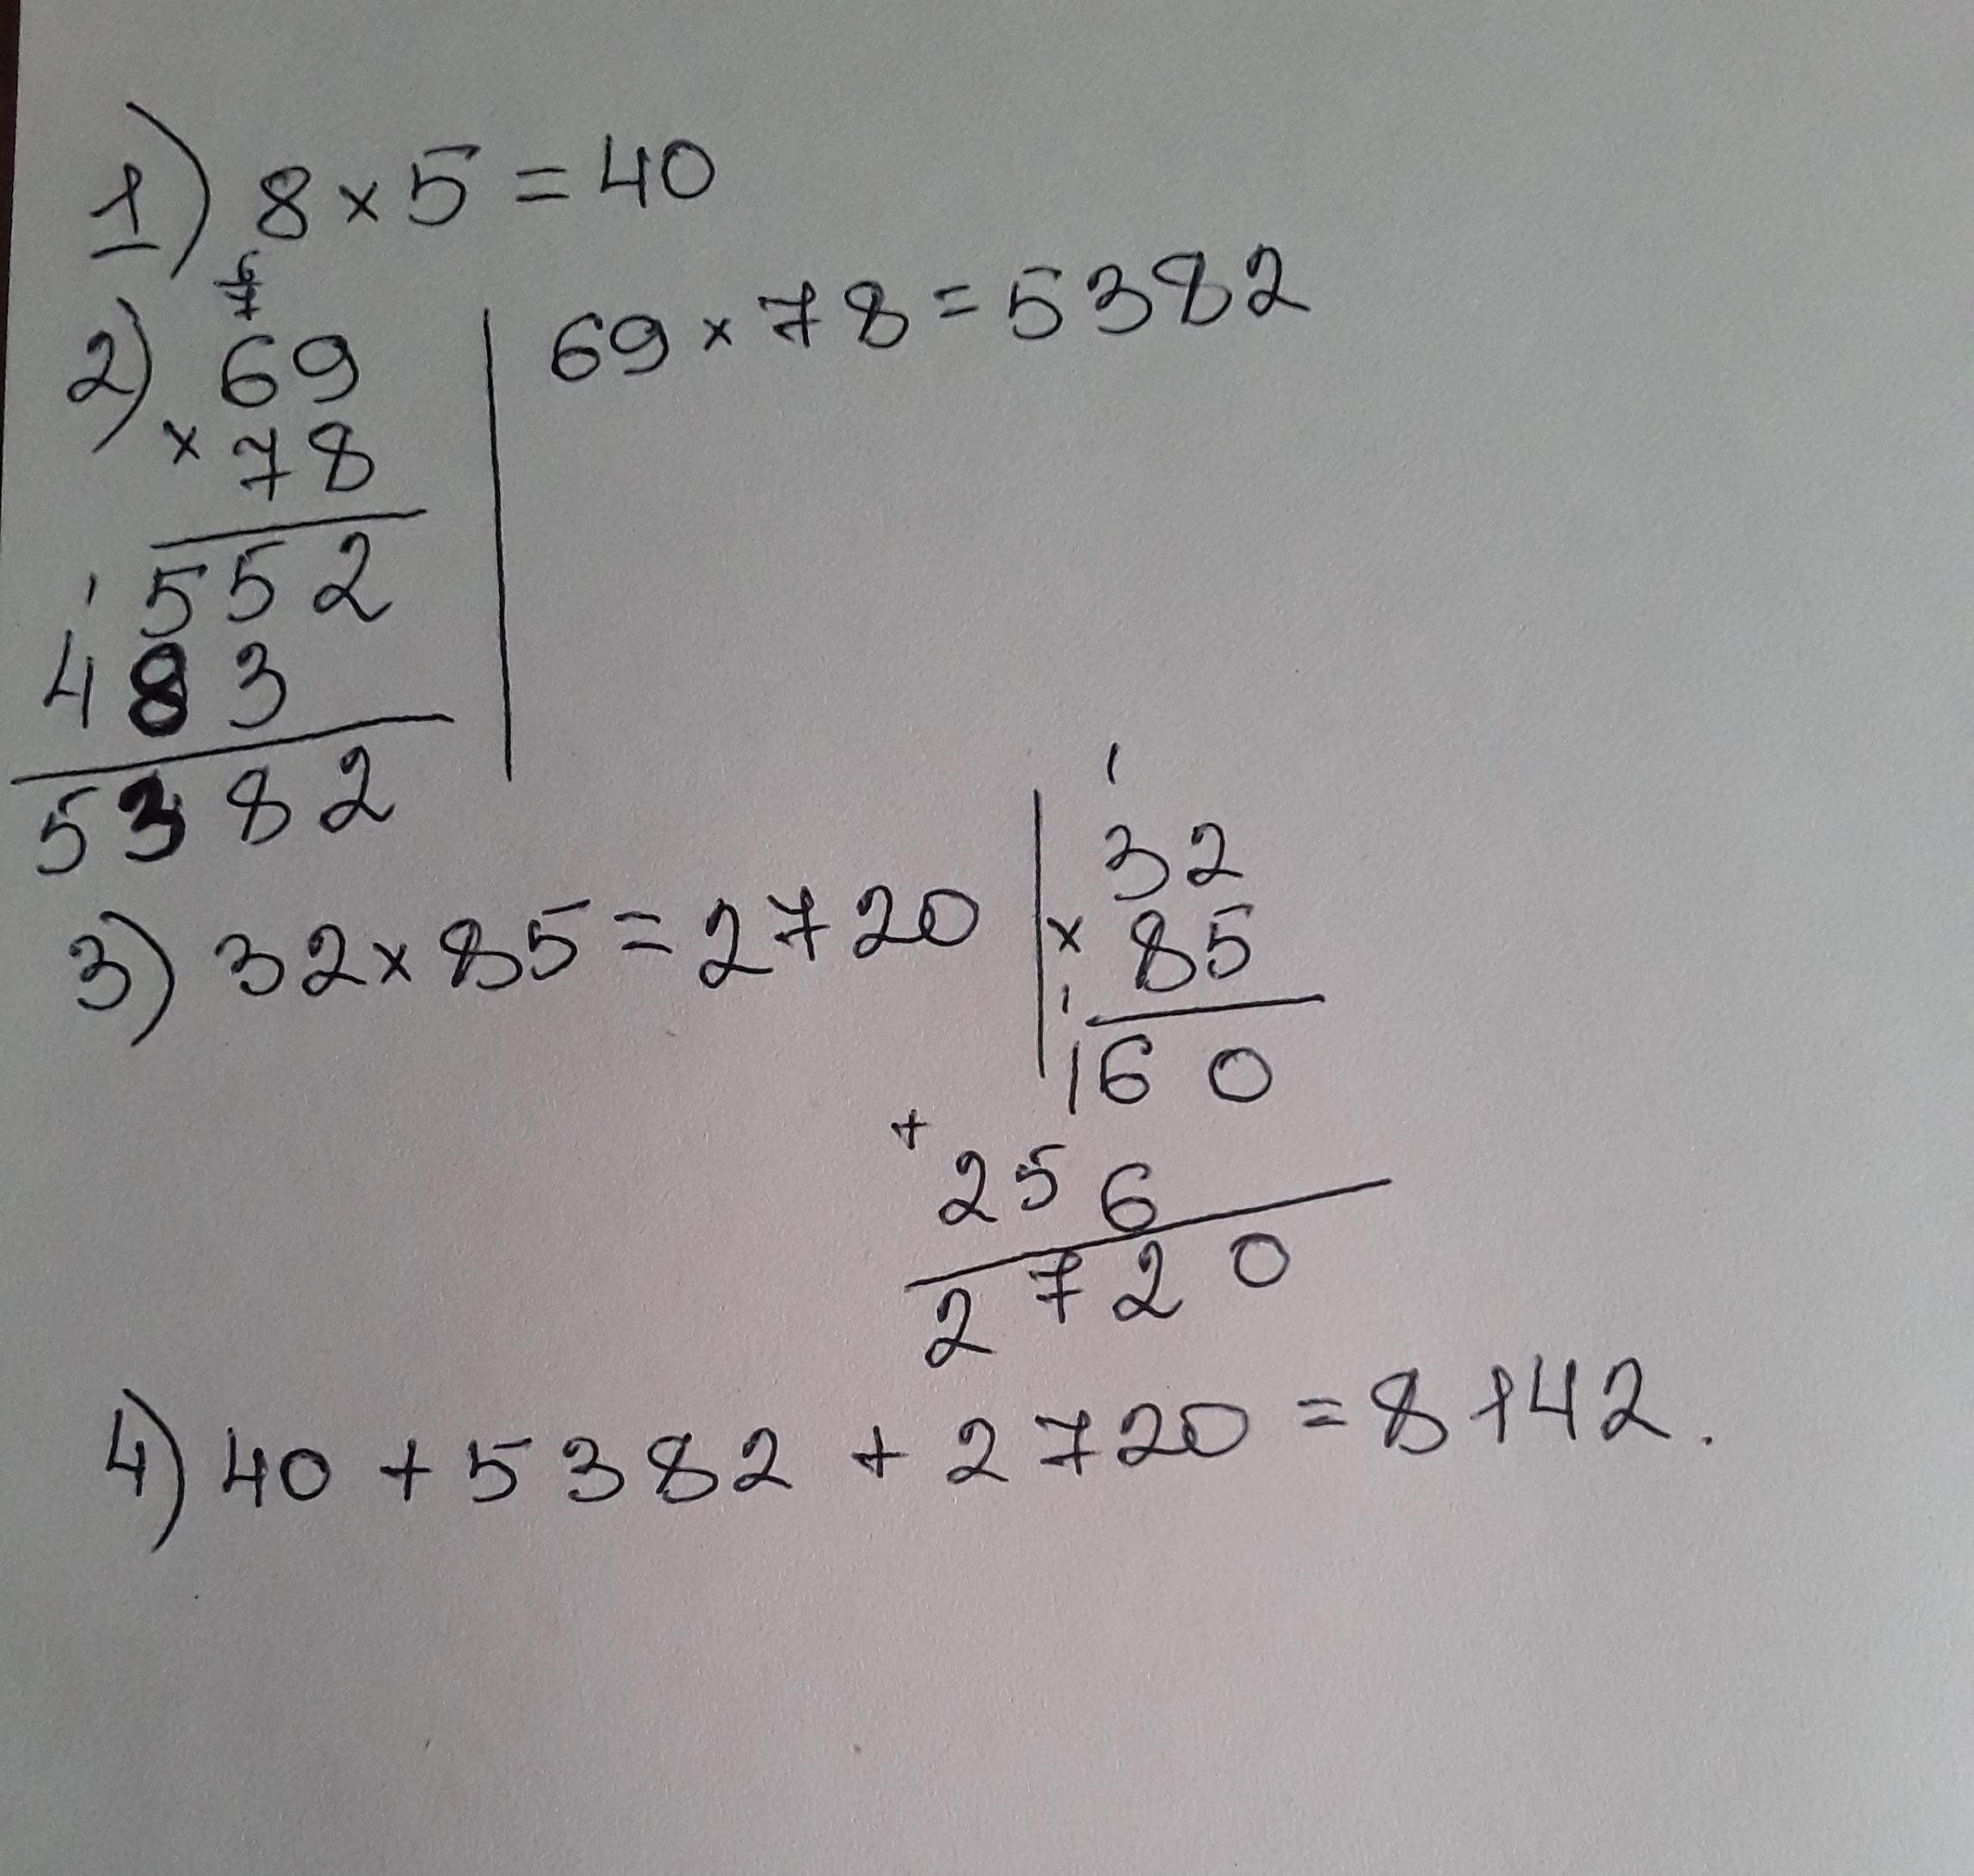 1) 8 × 5 = 40
6
7
2) 69
× 78
552
1
483
5382
69 × 78 = 5382
3) 32 × 85 = 2720
1
32
× 85
1
160
+
256
2720
4) 40 + 5382 + 2720 = 8142.